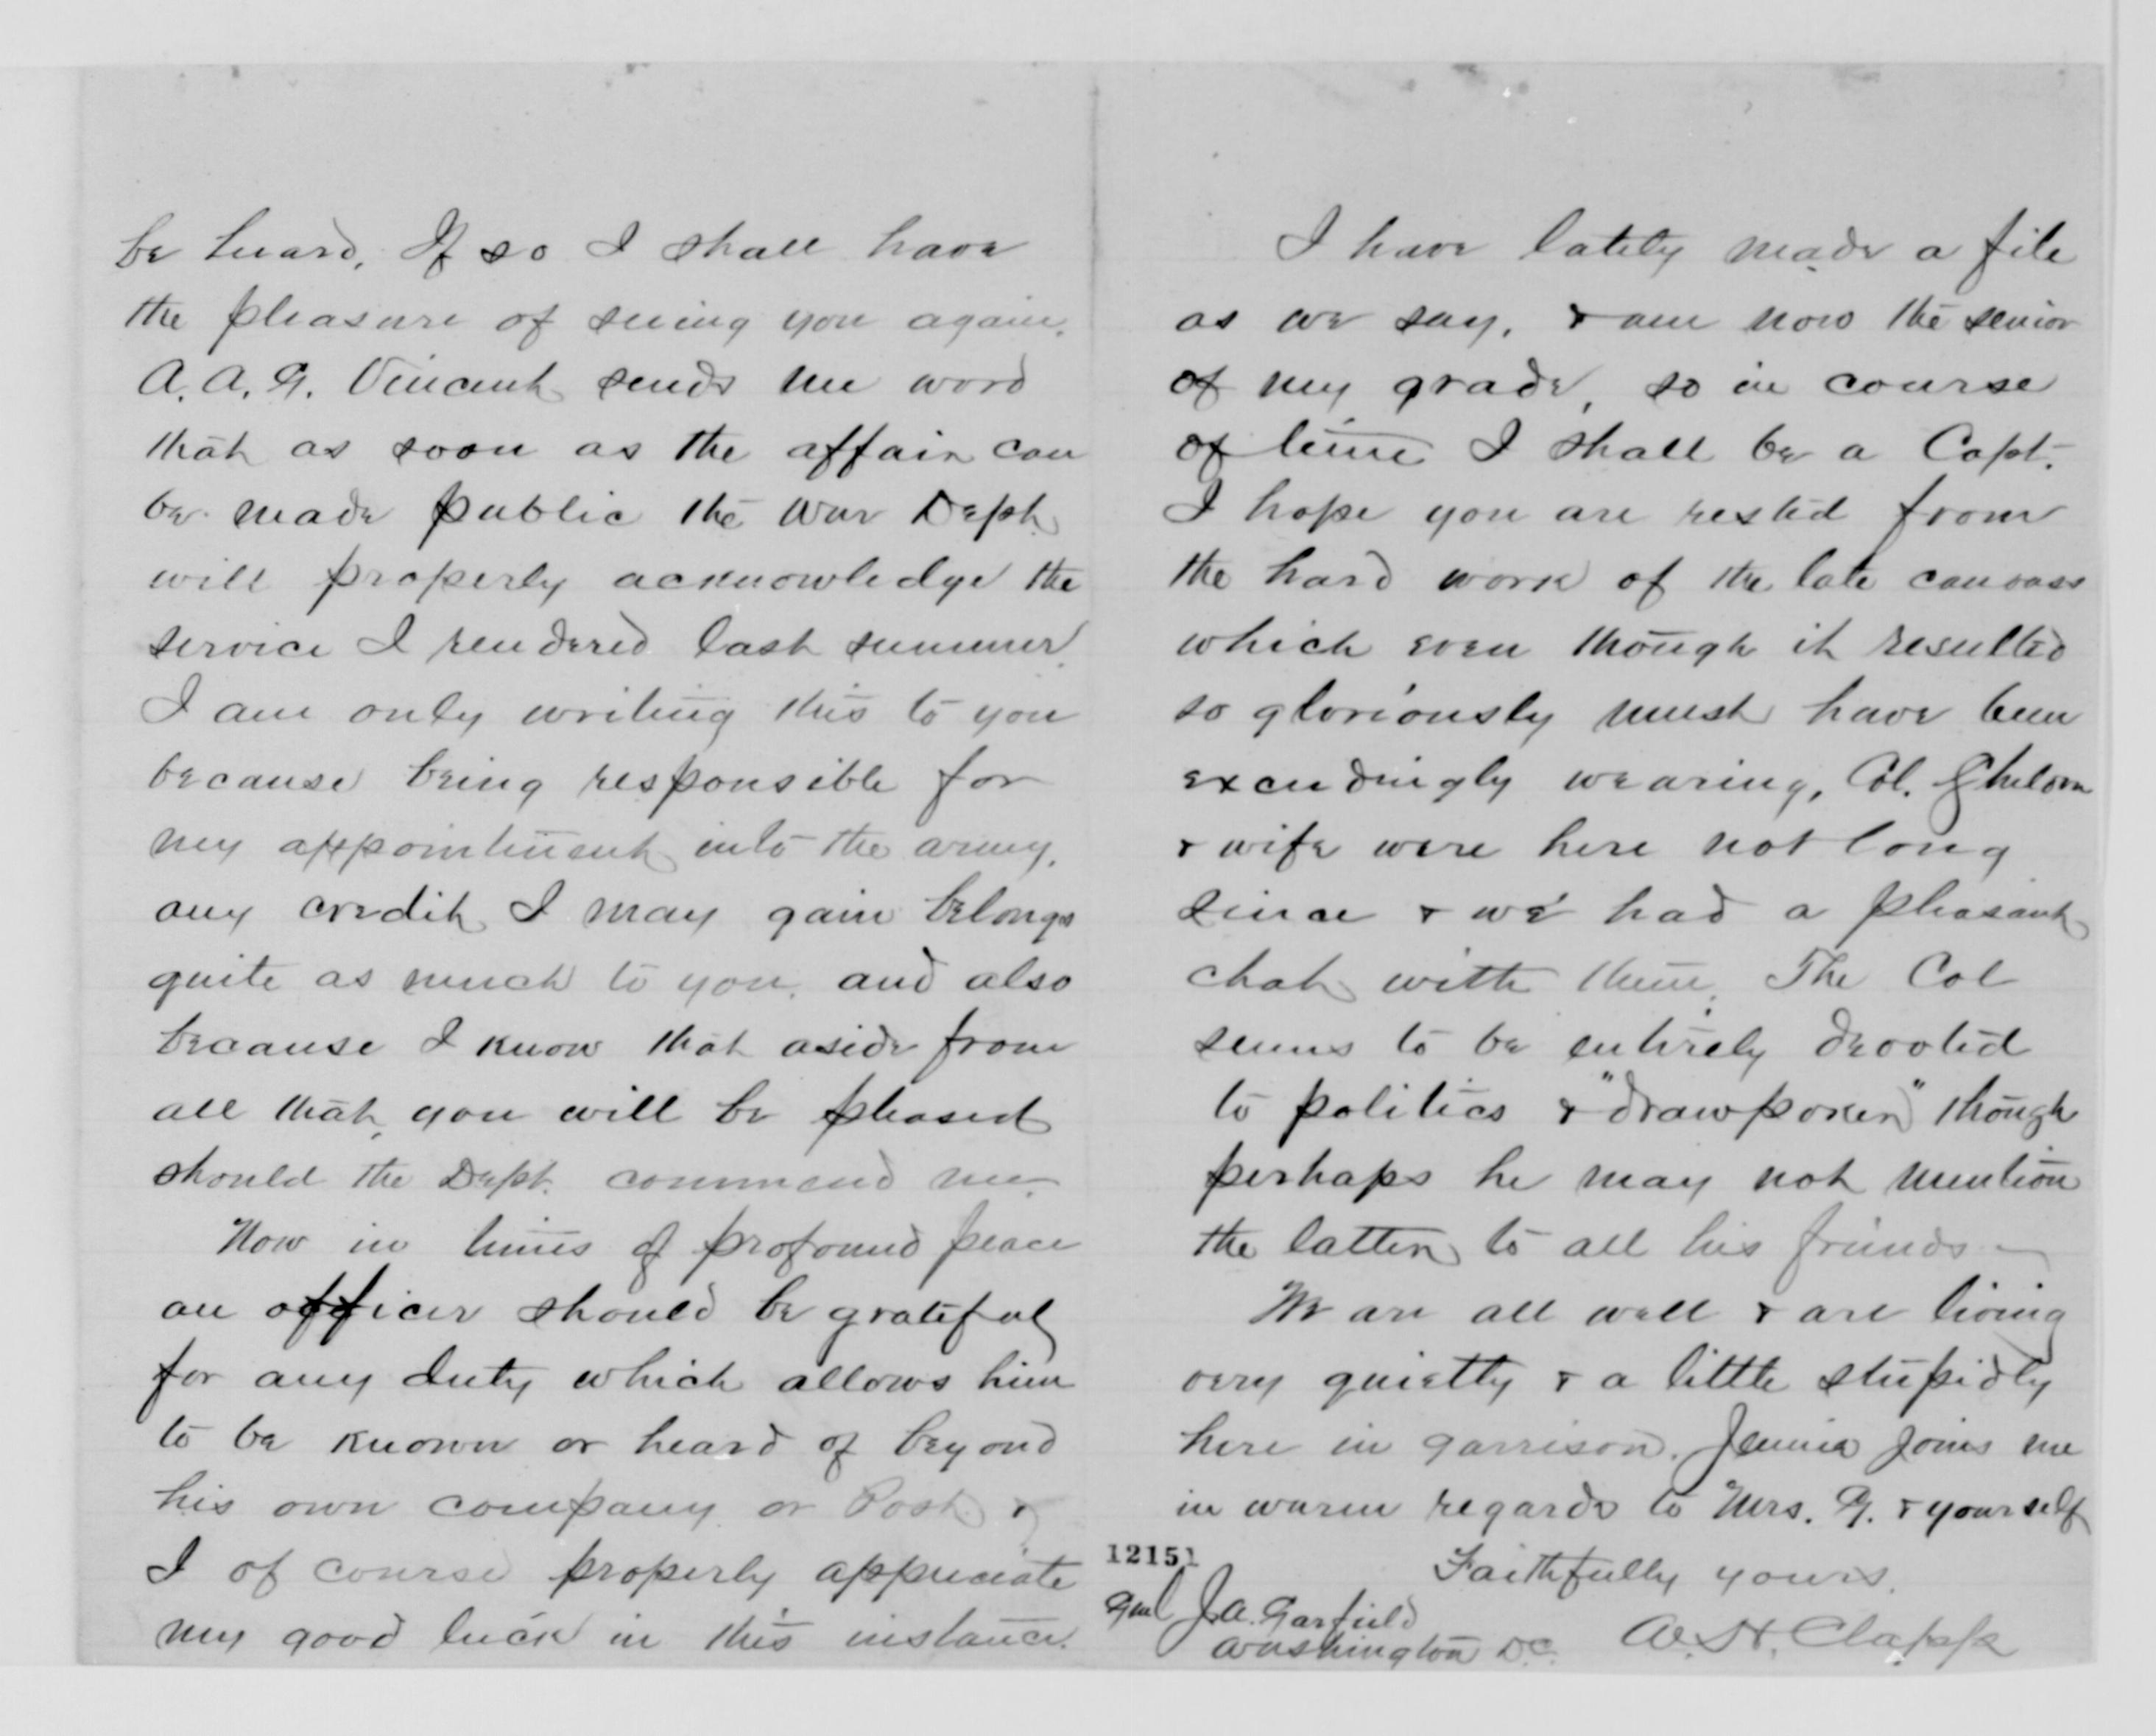 be heard. If so I shall have
the pleasure of seeing you again.
A. A. G. Vincent sends me word
that as soon as the affair can
be made public the War Dept.
will properly acknowledge the
service I rendered last summer.
I am only writing this to you
because being responsible for
my appointment into the army,
any credit I may gain belongs
quite as much to you, and also
because I know that aside from
all that, you will be pleased
should the Dept. commend me.
Now in times of profound peace
an officer should be grateful
for any duty which allows him
to be known or heard of beyond
his own company or Post &
I of course properly appreciate
my good luck in this instance.
I have lately made a file
as we say, & am now the senior
of my grade, so in course
of time I shall be a Capt.
I hope you are rested from
the hard work of the late canvass
which even though it resulted
so gloriously must have been
exceedingly wearing, Col.
& wife were here not long
since & we had a pleasant
chat with them. The Col
seems to be entirely devoted
to politics & "draw poker" though
perhaps he may not mention
the latter to all his friends —
We are all well & are living
very quietly & a little stupidly
here in garrison. Jennie joins me
in warm regards to Mrs. G. & yourself
Faithfully yours,
W. H. Clapp
12151
Genl J. A. Garfield
Washington D.C.